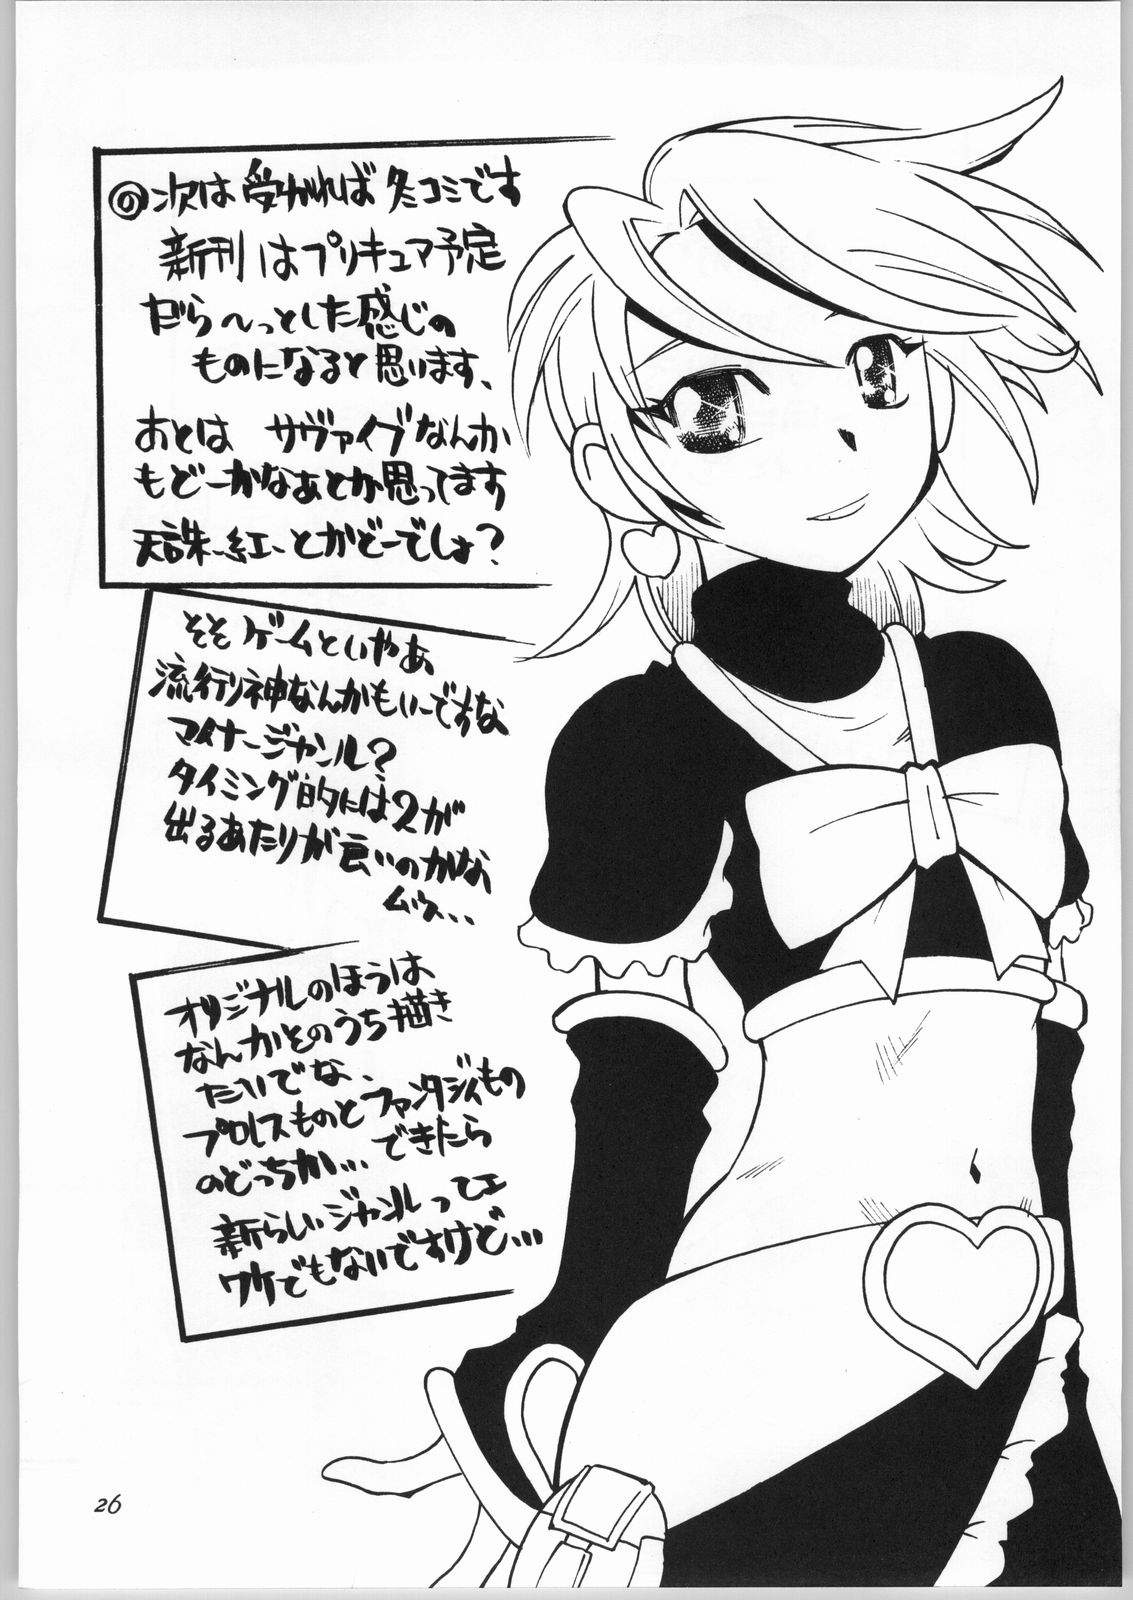 の 次は受かれば冬コミです
新刊はプリキュア予定
だら〜っとした感じの
ものになると思います、
あとは サヴァイブなんか
もどーかなあとか思ってます
天誅 紅 とかどーでしょ?
そそ ゲームといやあ
流行り神なんかもいーですな
マイナージャンル?
タイミング的には2が
出るあたりが良いのかな
ムゥ...
オリジナルのほうは
なんかそのうち描き
たいでな、
プロレスものとファンタジィもの
のどっちか... できたら
新らしいジャンルってェ
ワケでもないですけど...
26